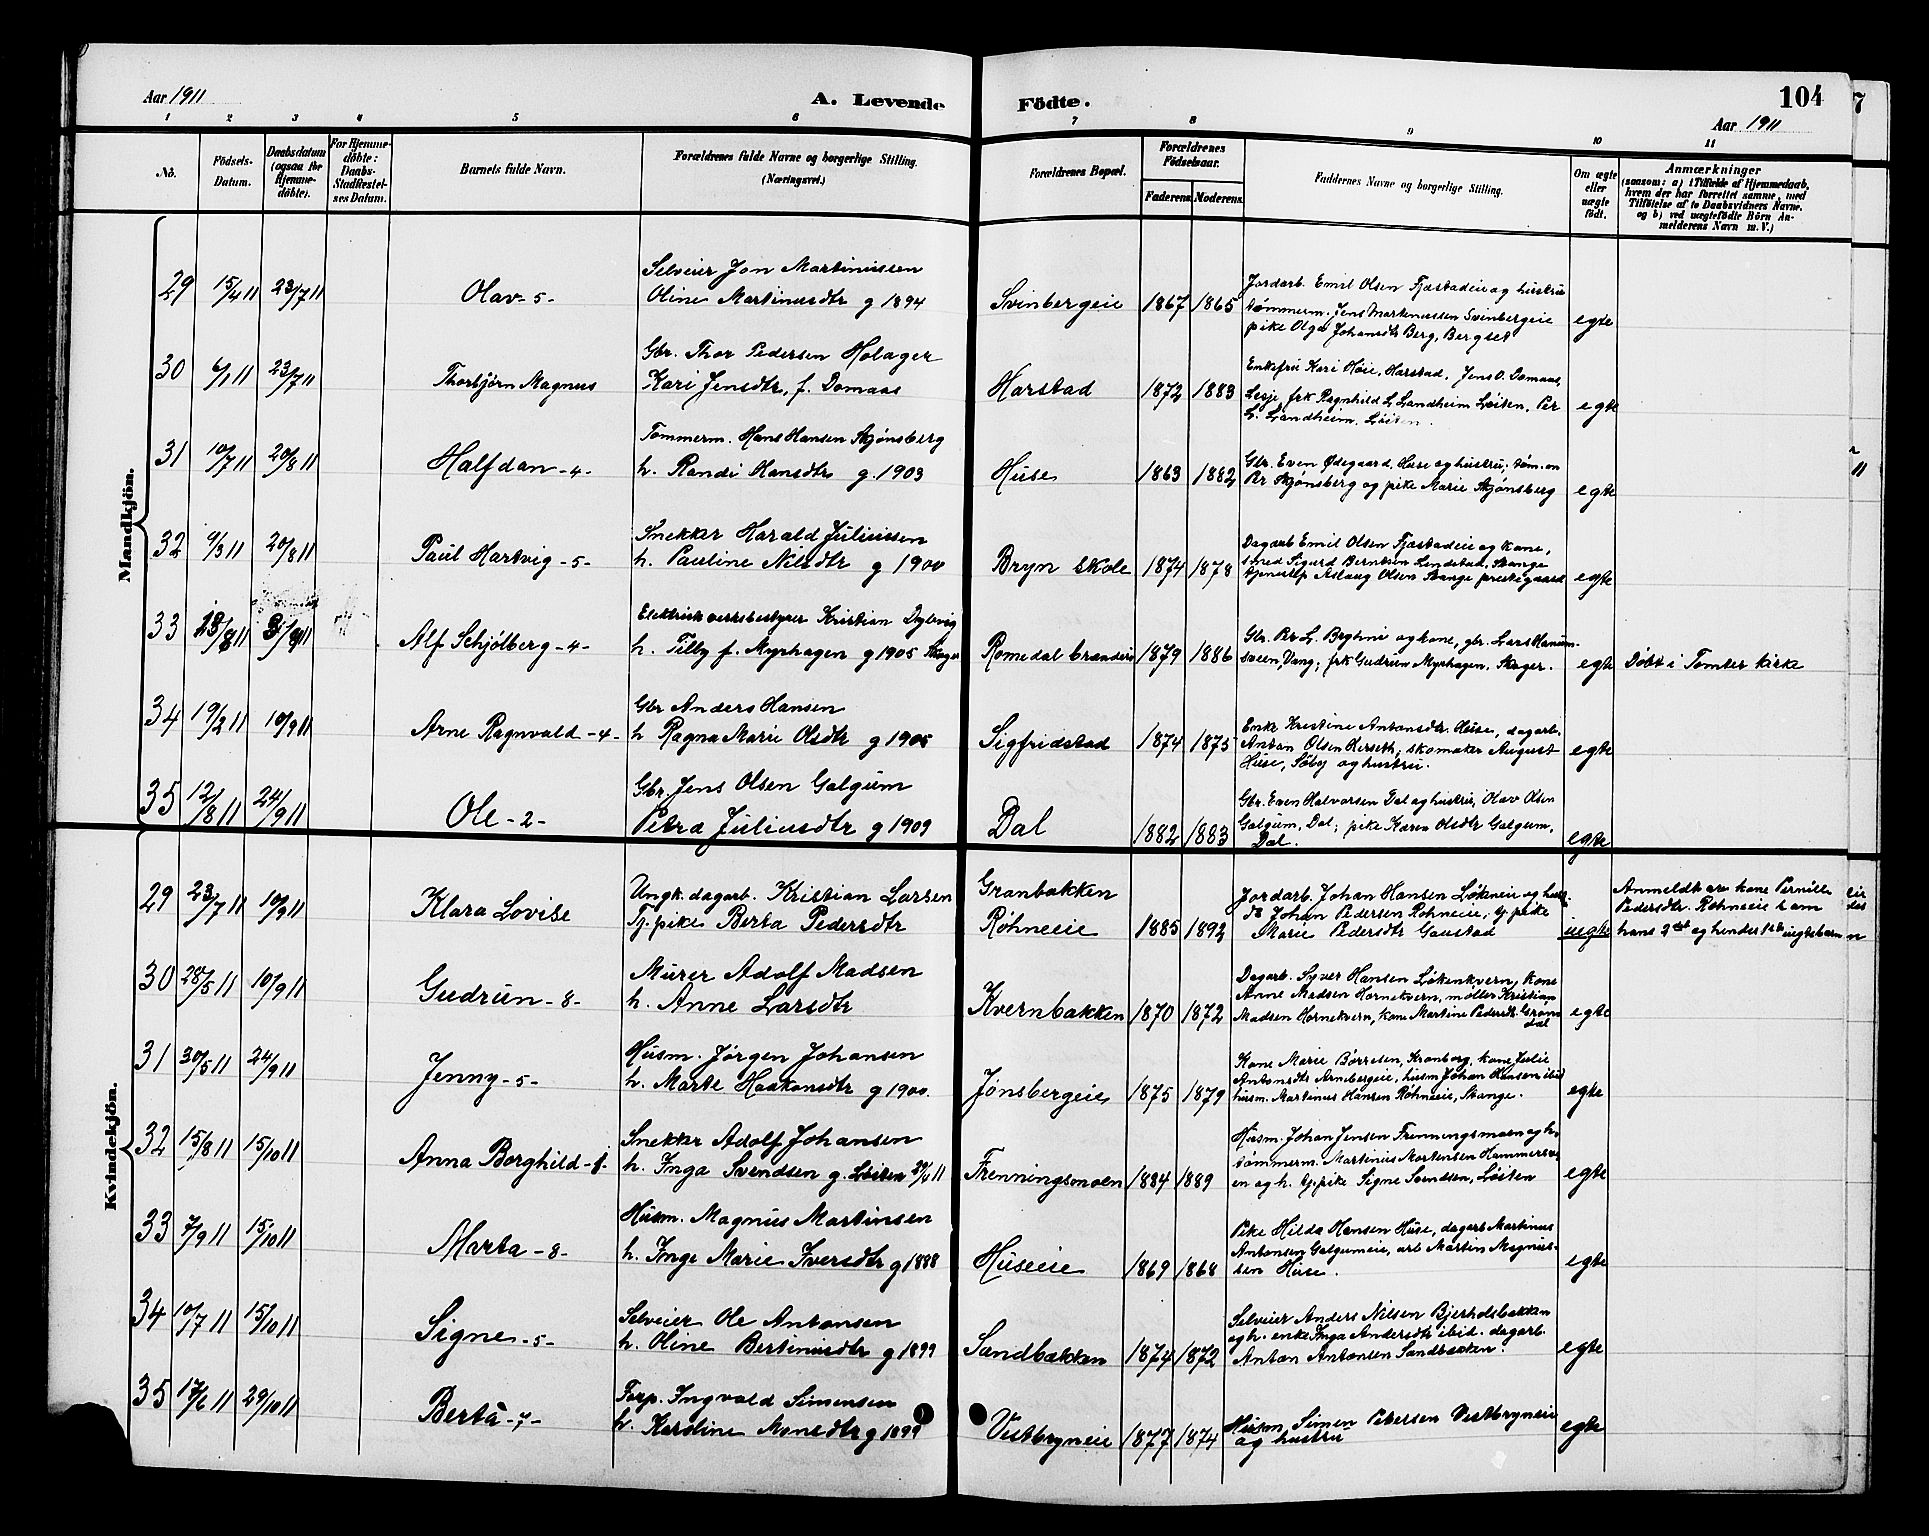 Aar 1911
A. Levende Födte.
104
Aar 1911
1 2 3 4 5 6 7 8 9 10 11
No.
Födsels-Datum.
Daabsdatum (ogsaa for Hjemme-döbte).
For Hjemme-döbte: Daabs-Stadfæstel-ses Datum.
Barnets fulde Navn.
Forældrenes fulde Navne og borgerlige Stilling. (Næringsvei.)
Forældrenes Bopæl.
Forældrenes Födselsaar.
Faderens. Moderens.
Faddernes Navne og borgerlige Stilling.
Om ægte eller uægte födt.
Anmærkninger
(saasom: a) i Tilfælde af Hjemmedaab, hvem der har forrettet samme, med Tilföielse af to Daabsvidners Navne, og b) ved uægtefödte Börn An-melderens Navn m. V.)
Mandkjön.
29 15/4 11 23/7 11 Olav - 5 -
Selveier Jon Martinussen
Oline Martinusdtr g 1894
Svinbergeie 1867 1865
Jordarb. Emil Olsen Fjæstadeie og hustru
tømmerm. Jens Martinussen Svinbergeie
pike Olga Johansdtr Berg, Bergset
egte
30 6/1 11 23/7 11 Thorbjörn Magnus
Gbr. Thor Pedersen Holager
Kari Jensdtr, f. Domaas
Harstad 1872 1883
Enkefru Kari Høie, Harstad, Jens O. Domaas,
Lesje frk Ragnhild L. Landheim Løiten, Per
L. Landheim, Løiten.
egte
31 10/7 11 20/8 11 Halfdan - 4 -
Tommerm. Hans Hansen Skjønsberg
h. Randi Hansdtr g. 1903
Huse 1863 1882
Gbr. Even Ødegaard, Huse og hustru; tøm.m
Pr Skjønsberg og pike Marie Skjønsberg
egte
32 9/3 11 20/8 11 Paul Hartvig - 5 -
Snekker Harald Juliussen
h. Pauline Nilsdtr g 1900
Bryn skole 1874 1878
Dagarb Emil Olsen Fjæstadeie og kone,
smed Sigurd Berntsen Lindstad, Stange
Aslaug Olsen Stange prestegaard
egte
33 Alf Schjölberg - 4 -
Elektrisk verksbestyrer Kristian
h. Tilly f. Myrhagen g 1905
Romedal brænderi 1879 1886
Gbr. Pr L. Bryhni og kone, gbr. Lars Hanum-
sveen, Vang; frk Gudrun Myrhagen, Skager.
egte
Døbt i Tomter kirke
34 19/2 11 10/9 11 Arne Ragnvald - 4 -
Gbr Anders Hansen
h Ragna Marie Olsdtr g 1905
Sigfridstad 1874 1875
Enke Kristine Antonsdtr Huse, dagarb.
Anton Olsen Herseth, skomaker August
Huse, Søby og hustru.
egte
35 12/8 11 24/9 11 Ole - 2 -
Gbr. Jens Olsen Galgum
Petra Juliusdtr g 1909
Dal 1882 1883
Gbr. Even Halvorsen Dal og hustru, Olav Olsen
Galgum, Dal; pike Karen Olsdtr Galgum,
Dal.
egte
Kvindekjön.
29 23/7 11 10/9 11 Klara Lovise
Ungk. dagarb. Kristian Larsen
Tj. pike Berta Pedersdtr
Granbakken
Røhneeie 1885 1892
Jordarb. Johan Hansen Løkeneie og hustr.
do Johan Pedersen Røhneeie, tj. pike
Marie Pedersdtr Gaustad
uegte
Anmeldt av kone Pernille
Pedersdtr. Røhneeie barn
hans 2det og hendes 1ste uegtebarn
30 28/5 11 10/9 11 Gudrun - 8 -
Murer Adolf Madsen
h. Anne Larsdtr
Kvernbakken 1870 1872
Dagarb. Syver Hansen Løkenkvern, kone
Anne Madsen Hornekvern, møller Kristian
Madsen Hornekvern, kone Martine Pedersdtr Gran
dal
egte
31 30/5 11 24/9 11 Jenny - 5 -
Husm. Jørgen Johansen
h. Marte Haakonsdtr g 1900.
Jønsbergeie 1875 1879
Kone Marie Børresen, Kronborg, kone Julie
Antonsdtr Arnebergeie, husm Johan Hansen ibid
husm. Martinus Hansen Røhneeie, Stange.
egte
32 15/8 11 15/10 11 Anna Borghild - 1 -
Snekker Adolf Johansen
h. Inga Svendsen g. Løiten 29/4 11
Frenningsmoen 1884 1889
Husm. Johan Jensen Frenningsmoen og h.
tømmerm. Martinus Mortensen Hammersve-
en og h. tj. pike Signe Svendsen, Løiten
egte
33 7/9 11 15/10 11 Marta - 8 -
Husm. Magnus Martinsen
h. Inge Marie Iversdtr g 1888
Huseeie 1869 1868
Pike Hilda Hansen Huse, dagarb Martinus
Antonsen Galgumeie, arb Martin Magnus-
sen Huse.
egte
34 10/7 11 15/10 11 Signe - 5 -
Selveier Ole Antonsen
h. Oline Bertinusdtr g 1899
Sandbakken 1874 1872
Selveier Anders Nilsen Bjerhdsbakken
og h. enke Inga Andersdtr ibid. dagarb.
Anton Antonsen Sandbakken.
egte
35 17/6 11 29/10 11 Berta - 7 -
Forp. Ingvald Simensen
h. Karoline Monsdtr g 1899
Vestbryneie 1877 1874
Husm Simen Petersen Vestbryneie
og hustru
egte